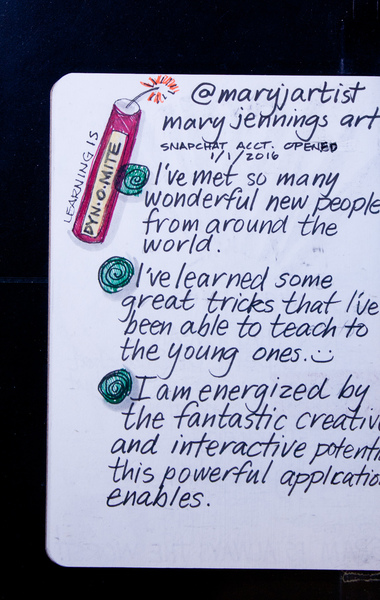 LEARNING IS
DYN·O·MITE
@maryjartist
mary jennings art
SNAPCHAT ACCT. OPENED
1/1/2016
I've met so many
wonderful new people
from around the
world.
I've learned some
great tricks that I've
been able to teach to
the young ones.
I am energized by
the fantastic creativ
and interactive potenti
this powerful applicatio
enables.